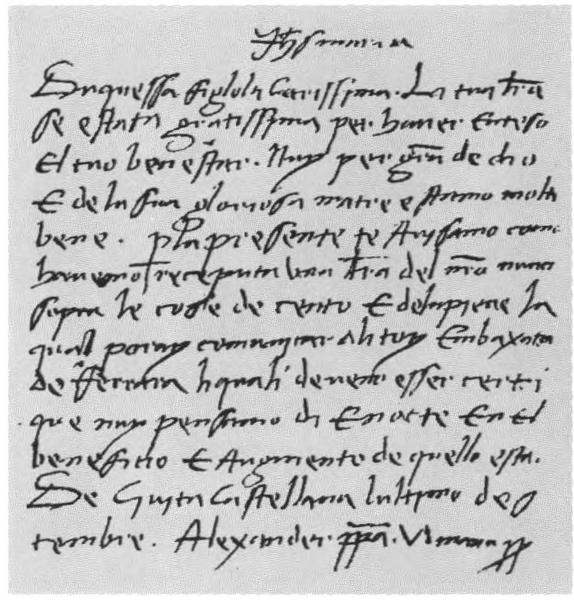 Jhs maria
Duquessa figlola Carissima. La tua lra
se estata gratissima per haver Enteso
El tuo ben estar. Nuy per gra de dio
E de la sua gloriosa matre estamo molto
bene. p la presente te Avisamo como
havemo receputa una lra del nro nunci
sopra le cose de cento E delapieve la
qual poray comunicar ali toy Embaxatori
de ferrara liquali deveno esser certi
que nuy pensamo di E nocte En el
beneficio E Augmento de quello esta.
De Civita Castellana lultimo de
tembre. Alexander ppa. VI